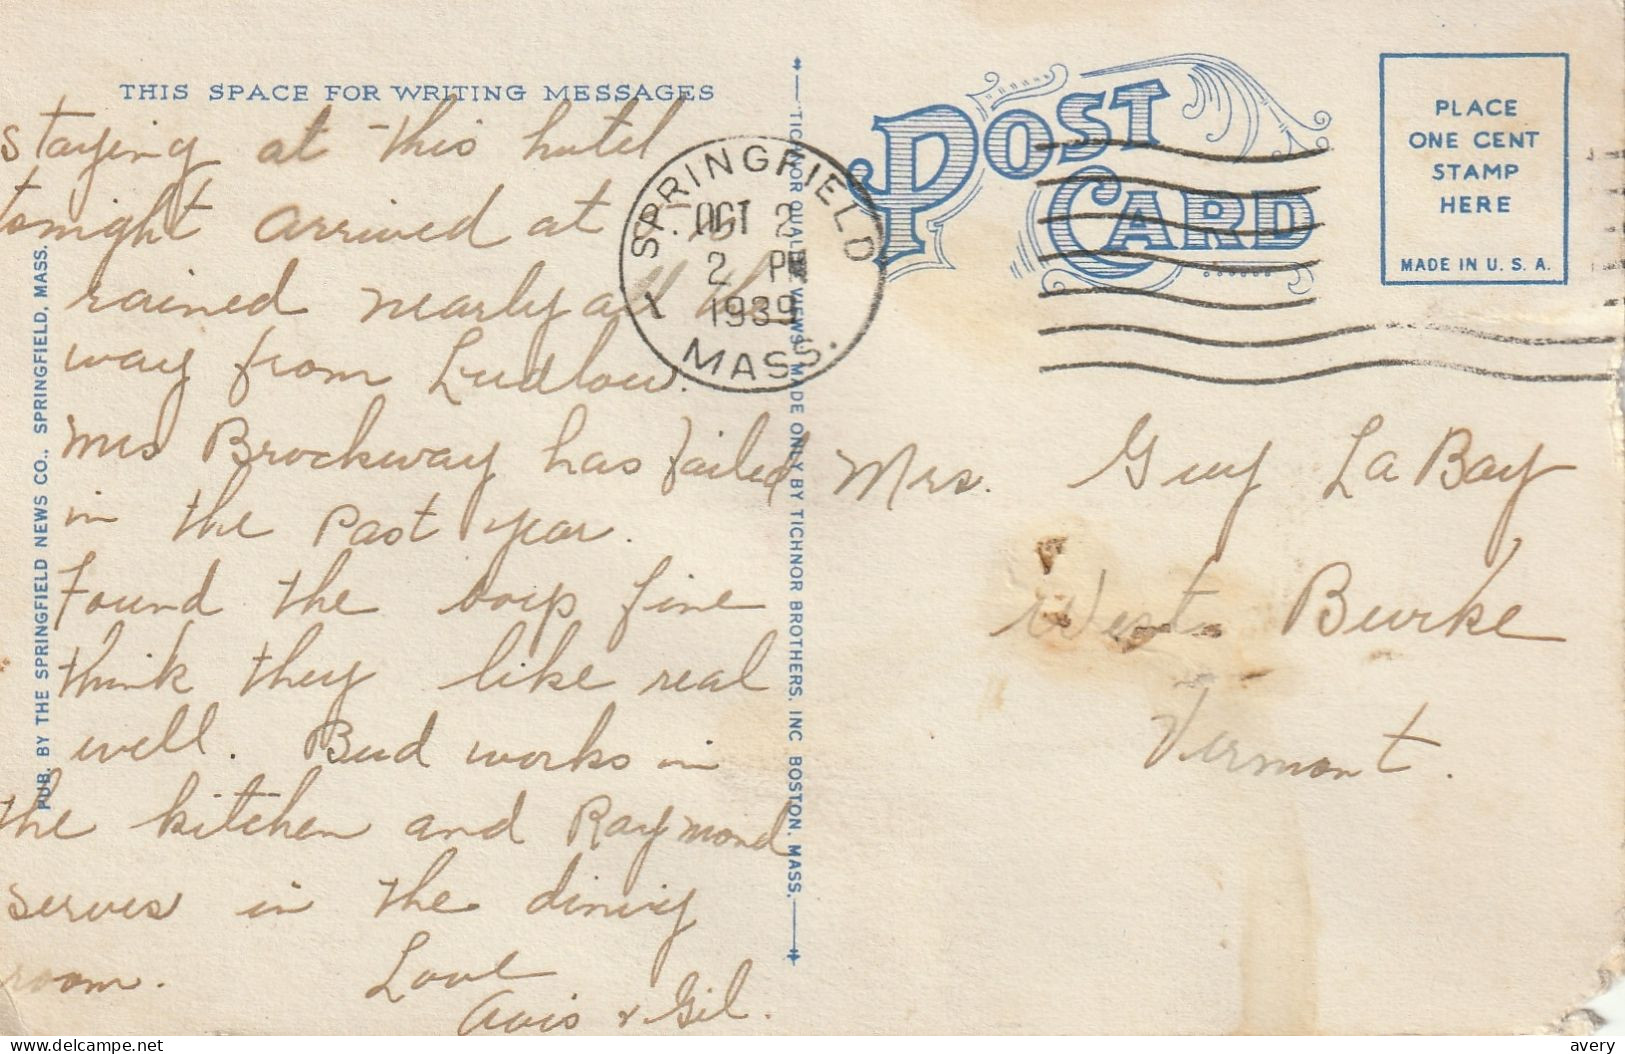 THIS SPACE FOR WRITING MESSAGES
staying at this hotel
tonight arrived at
rained nearly all the
way from Ludlow.
Mrs Brockway has failed
in the past year.
Found the boys fine
think they like real
well. Bud works in
the kitchen and Raymond
serves in the dining
room. Love
Avis & Gil.
PUB. BY THE SPRINGFIELD NEWS CO., SPRINGFIELD, MASS.
TICHNOR QUALITY VIEWS. MADE ONLY BY TICHNOR BROTHERS, INC BOSTON, MASS.
SPRINGFIELD
OCT 2
2 PM
1939
1
MASS.
POST CARD
PLACE
ONE CENT
STAMP
HERE
MADE IN U. S. A.
Mrs. Guy LaBay
West Burke
Vermont.
delcampe.net
avery